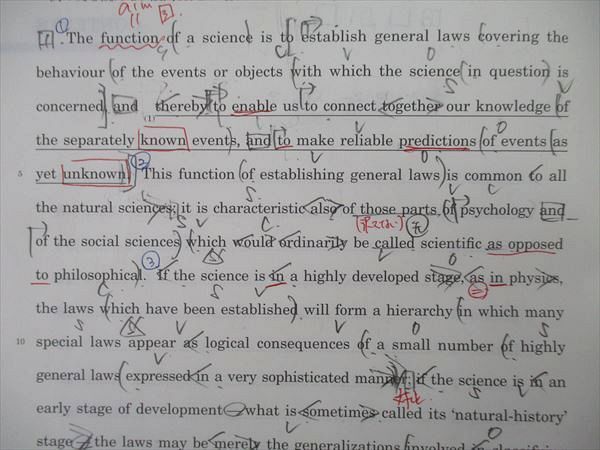 aim
[1] ①. The function of a science is to establish general laws covering the
behaviour of the events or objects with which the science in question is
concerned, and thereby to enable us to connect together our knowledge of
(1)
the separately known events, and to make reliable predictions of events as
5 yet unknown. ② This function of establishing general laws is common to all
the natural sciences; it is characteristic also of those parts of psychology and
of the social sciences which would ordinarily be called scientific as opposed
to philosophical. ③ If the science is in a highly developed stage, as in physics,
the laws which have been established will form a hierarchy in which many
10 special laws appear as logical consequences of a small number of highly
general laws expressed in a very sophisticated manner; if the science is in an
early stage of development — what is sometimes called its 'natural-history'
stage — the laws may be merely the generalizations involved in